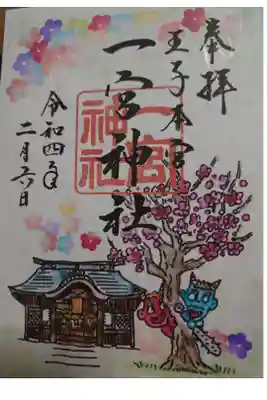 奉拝
王子本宮
一宮神社
令和四年
二月六日
一宮
神社